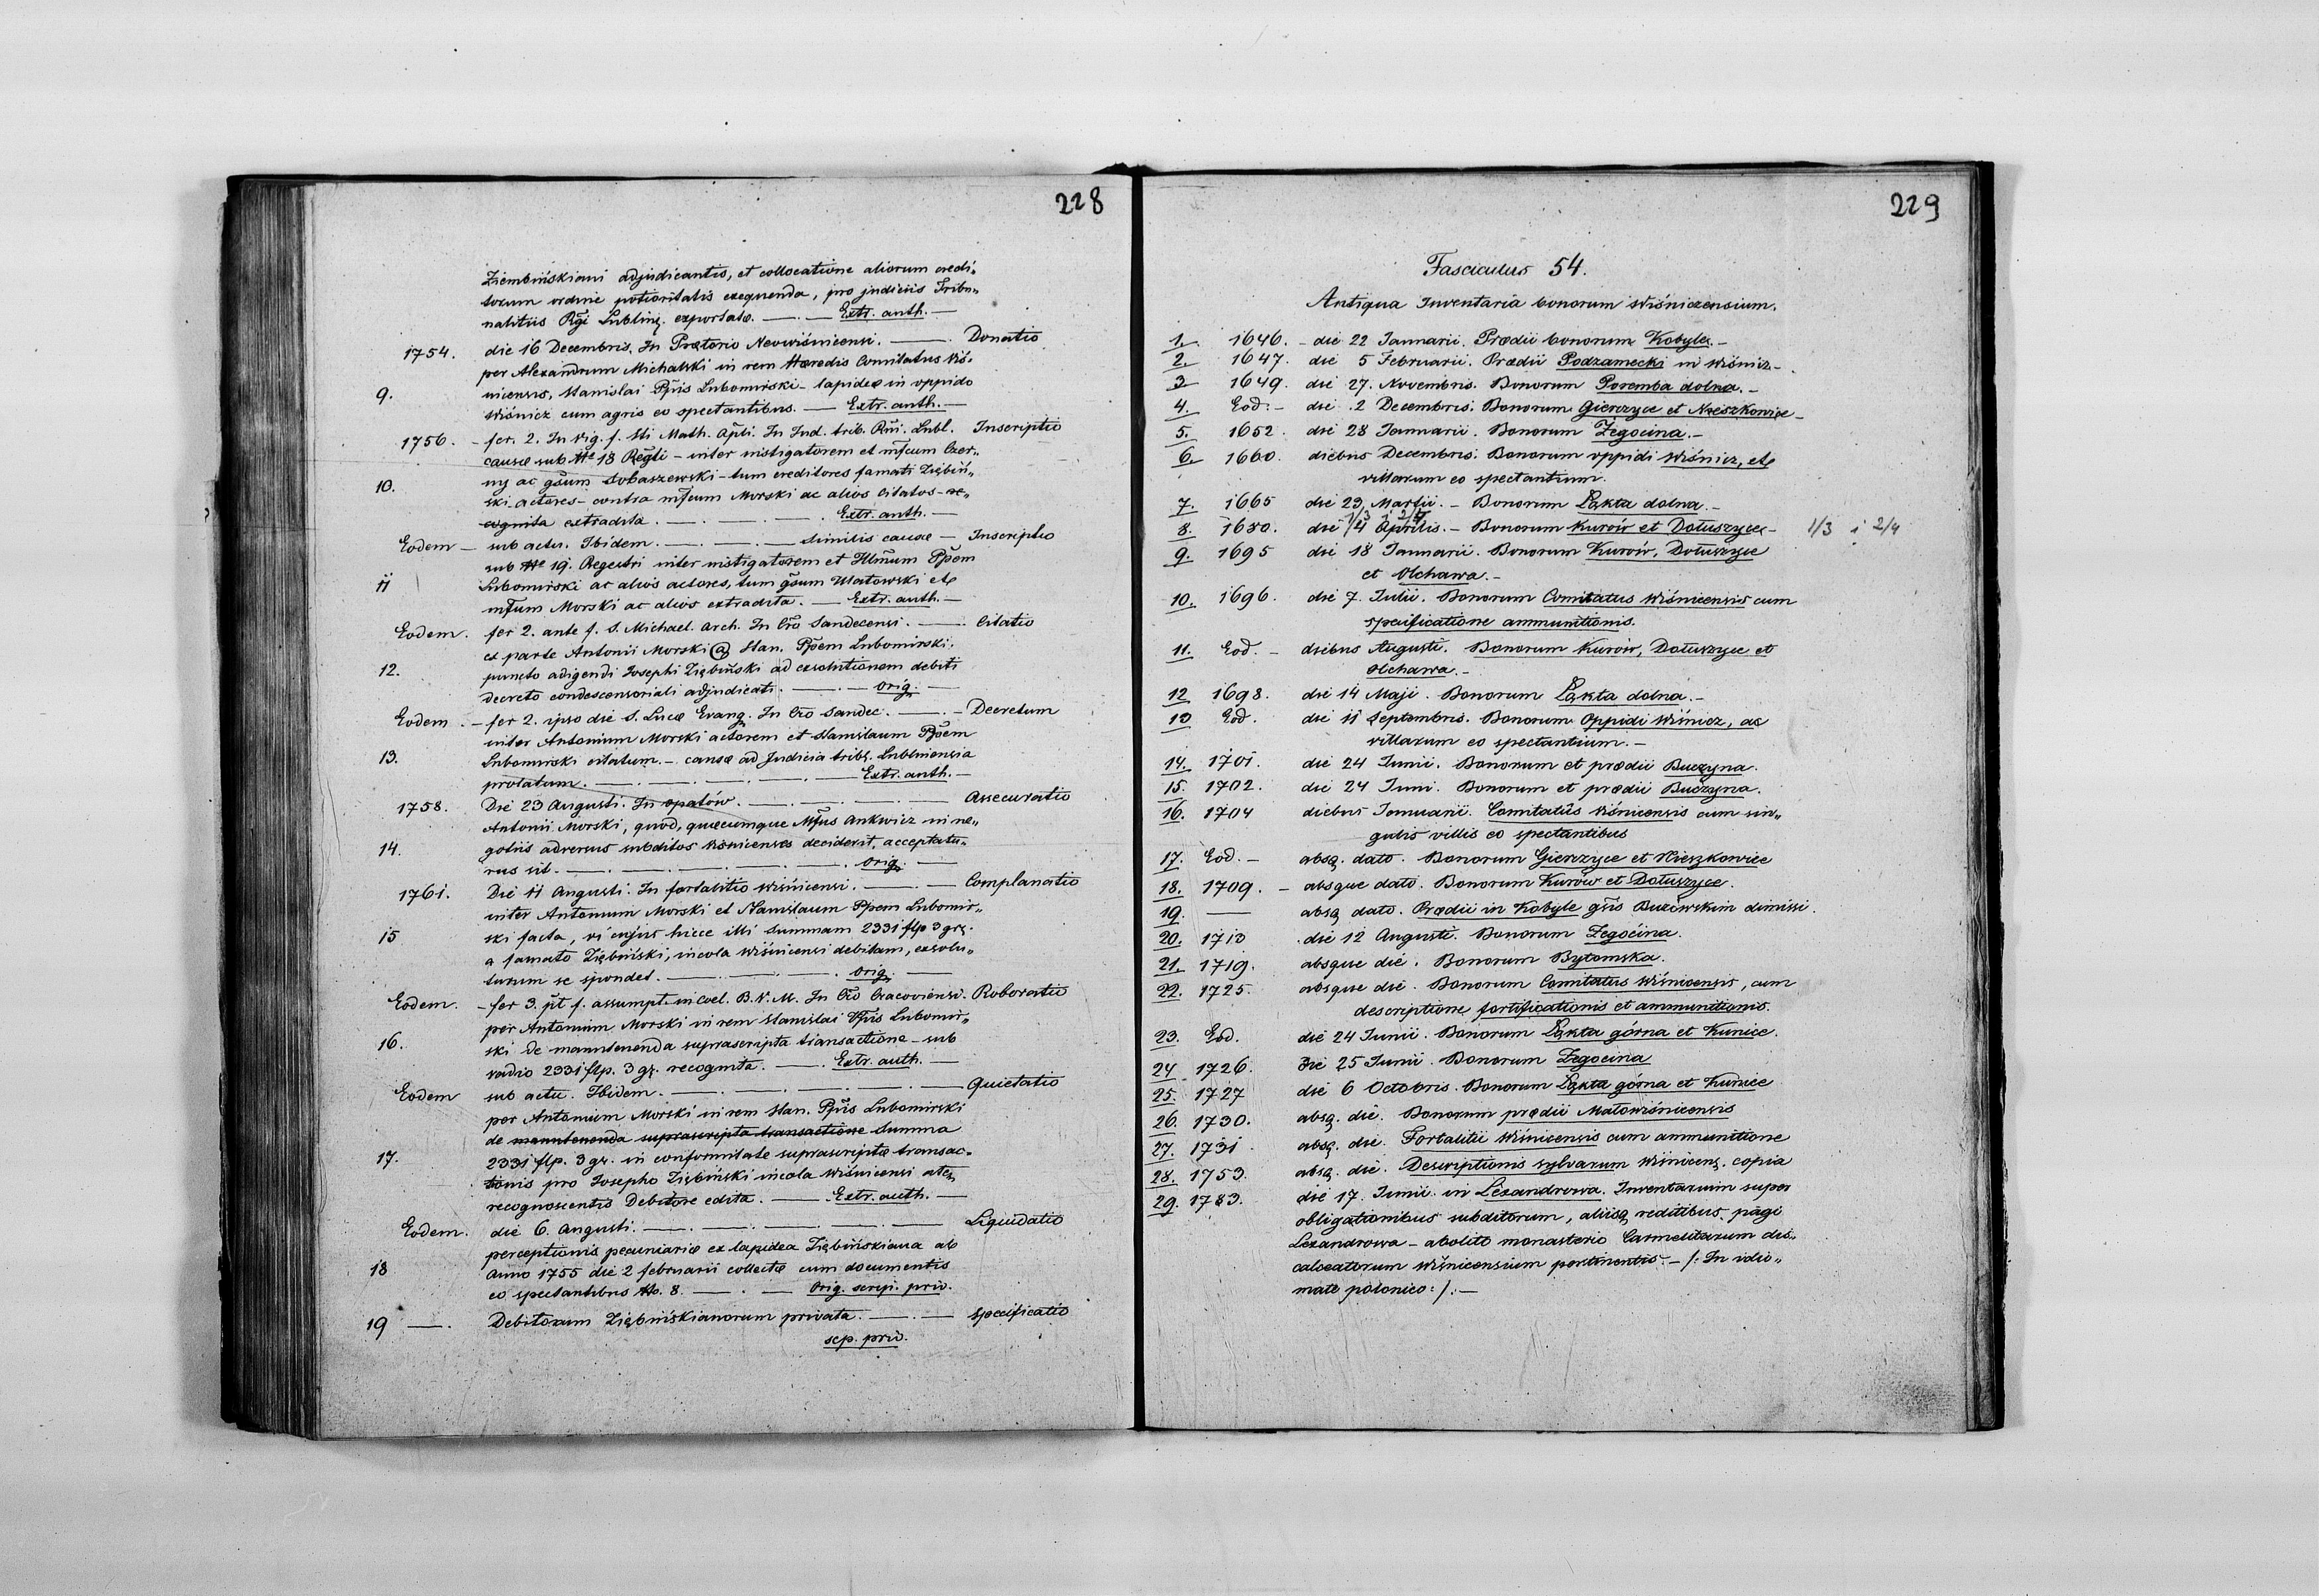 228
Ziembińskiani adjudicantis, et collocatione aliorum credi„
torum ordine potioritatis exequenda, pro judiciis Tribu„
nalitiis Rgi Lublinę. exportatæ. — . — Extr. auth. —
1754. die 16 Decembris, In Prætorio Neowiśnicensi. — Donatio
per Alexandrum Michalski in rem Hæredis Comitatus Wiś-
9. nicensis, Stanislai Ppis Lubomirski - lapideæ in oppido
Wiśnicz cum agris eo spectantibus. — Extr. auth. —
1756. - fer. 2. In vig. f. Sti Math. Apli. In Jud. trib. Rni. Lubl. Inscriptio
causæ sub No 18 Regtri - inter instigatorem et mfcum Czer„
10. ny ac gsum Sobaszewski - tum creditores famati Ziębiń„
ski actores - contra mfcum Morski ac alios citatos - re„
cognita extradita. — . — . — . Extr. auth. —
Eodem — sub actu. Ibidem. — . — . — similis causæ — Inscriptio
sub No 19. Regestri inter instigatorem et Illmum Ppem
11 Lubomirski ac alios actores, tum gsum Ulatowski etc
mfcum Morski ac alios extradita. — Extr. auth. —
Eodem. fer 2. ante f. S. Michael. Arch. In Cro Sandecensi. — Citatio
ex parte Antonii Morski @ Stan. Ppem Lubomirski.
12. puncto adigendi Josephi Ziębiński ad exsolutionem debiti
decreto condescensoriali adjudicati. — . — orig. —
Eodem. - fer 2. ipso die S. Lucæ Evang. In Cro Sandec. — . — Decretum
inter Antonium Morski actorem et Stanislaum Ppem
13. Lubomirski citatum. - causæ ad Judicia tribl. Lublinensia
prolatum. — . — . — . — Extr. auth. —
1758. Die 23 Augusti. In Opatów. — . — . — . — Assecuratio
Antonii Morski, quod, quæcumque Mfus Ankwicz in ne„
14. gotiis adversus subditos Wiśnicenses deciderit, acceptatu„
rus sit. — . — . — . — . orig. —
1761. Die 11 Augusti. In fortalitio Wiśnicensi. — . — Complanatio
inter Antonium Morski et Stanislaum Ppem Lubomir„
15 ski facta, vi cujus hicce illi summam 2331 flp 3 grs.
a famato Ziębiński, incola Wiśnicensi debitam, exsolu„
turum se spondet. — . — . — . orig. —
Eodem. - fer 3. pt f. assumpt. in coel. B. V. M. In Cro Cracoviensi. Roboratio
per Antonium Morski in rem Stanislai Ppis Lubomir„
16. ski de manutenenda suprascripta transactione - sub
vadio 2331 flp. 3 gr. recognita. — . Extr. auth. —
Eodem sub actu. Ibidem. — . — . — . — Quietatio
per Antonium Morski in rem Stan. Ppis Lubomirski
de manutenenda suprascripta transactione Summa
17. 2331 flp. 3 gr. in conformitate suprascriptæ transac-
tionis pro Josepho Ziębiński incola Wiśnicensi
recognoscentis Debitore edita. — . Extr. auth. —
Eodem. die 6. Augusti. — . — . — . — Liquidatio
perceptionis pecuniariæ ex lapidea Ziębińskiana ab
18 Anno 1755 die 2 februarii collectæ cum documentis
eo spectantibus No. 8. — . — Orig. script. priv.
19 — . Debitorum Ziębińskianorum privata. — . — Specificatio
scp. priv.
229
Fasciculus 54.
Antiqua Inventaria bonorum Wiśniczensium.
1. 1646. - die 22 Januarii. Prædii bonorum Kobyle. -
2. 1647. die 5 Februarii. Prædii Podzamecki in Wiśnicz -
3 1649. die 27. Novembris. Bonorum Poremba dolna. -
4. Eod: - die 2 Decembris. Bonorum Gierczyce et Nieszkowice -
5. 1652. die 28 Januarii. Bonorum Żegocina. -
6. 1660. diebus Decembris. Bonorum oppidi Wiśnicz, etc
villarum eo spectantium.
7. 1665 die 29 Martii. - Bonorum Łąkta dolna. -
8. 1680. die 1/3 i 2/4 Aprilis. - Bonorum Kurów et Dołuszyce - 1/3 i 2/4
9. 1695 die 18 Januarii. Bonorum Kurów, Dołuszyce
et Olchawa. -
10. 1696. die 7. Julii. Bonorum Comitatus Wiśnicensis cum
specificatione ammunitionis.
11. Eod. - diebus Augusti. Bonorum Kurów, Dołuszyce et
Olchawa. -
12 1698. die 14 Maji. Bonorum Łąkta dolna. -
13 Eod. die 11 Septembris. Bonorum Oppidi Wiśnicz, ac
villarum eo spectantium. -
14. 1701. die 24 Junii. Bonorum et prædii Buczyna.
15. 1702. die 24 Juni. Bonorum et prædii Buczyna.
16. 1704 diebus Januarii. Comitatûs Wiśnicensis cum sin„
gulis villis eo spectantibus
17. Eod. - absq. dato. Bonorum Gierczyce et Nieszkowice
18. 1709. - absque dato. Bonorum Kurów et Dołuszyce.
19. — absq dato. Prædii in Kobyle gsis Buzowskim dimissi.
20. 1713 die 12 Augusti. Bonorum Żegocina.
21. 1719. absque die. Bonorum Bytomska.
22. 1725 absque die. Bonorum Comitatus Wiśnicensis, cum
descriptione fortificationis et ammunitionis.
23. Eod. die 24 Junii. Bonorum Łąkta górna et Kunice.
24 1726. Die 25 Junii. Bonorum Żegocina
25. 1727 die 6 Octobris. Bonorum Łąkta górna et Kunice
26. 1730. absq. die. Bonorum prædii Małowiśnicensis
27. 1731. absq. die. Fortalitii Wiśnicensis cum ammunitione
28. 1753. absq. die. Descriptionis sylvarum Wiśnicens. copia
29. 1783. die 17. Junii in Lexandrowa. Inventarium super
obligationibus subditorum, aliisq reditibus pagi
Lexandrowa - abolito monasterio Carmelitarum dis„
calceatorum Wiśnicensium pertinentis. - /: In idio„
mate polonico :/. —